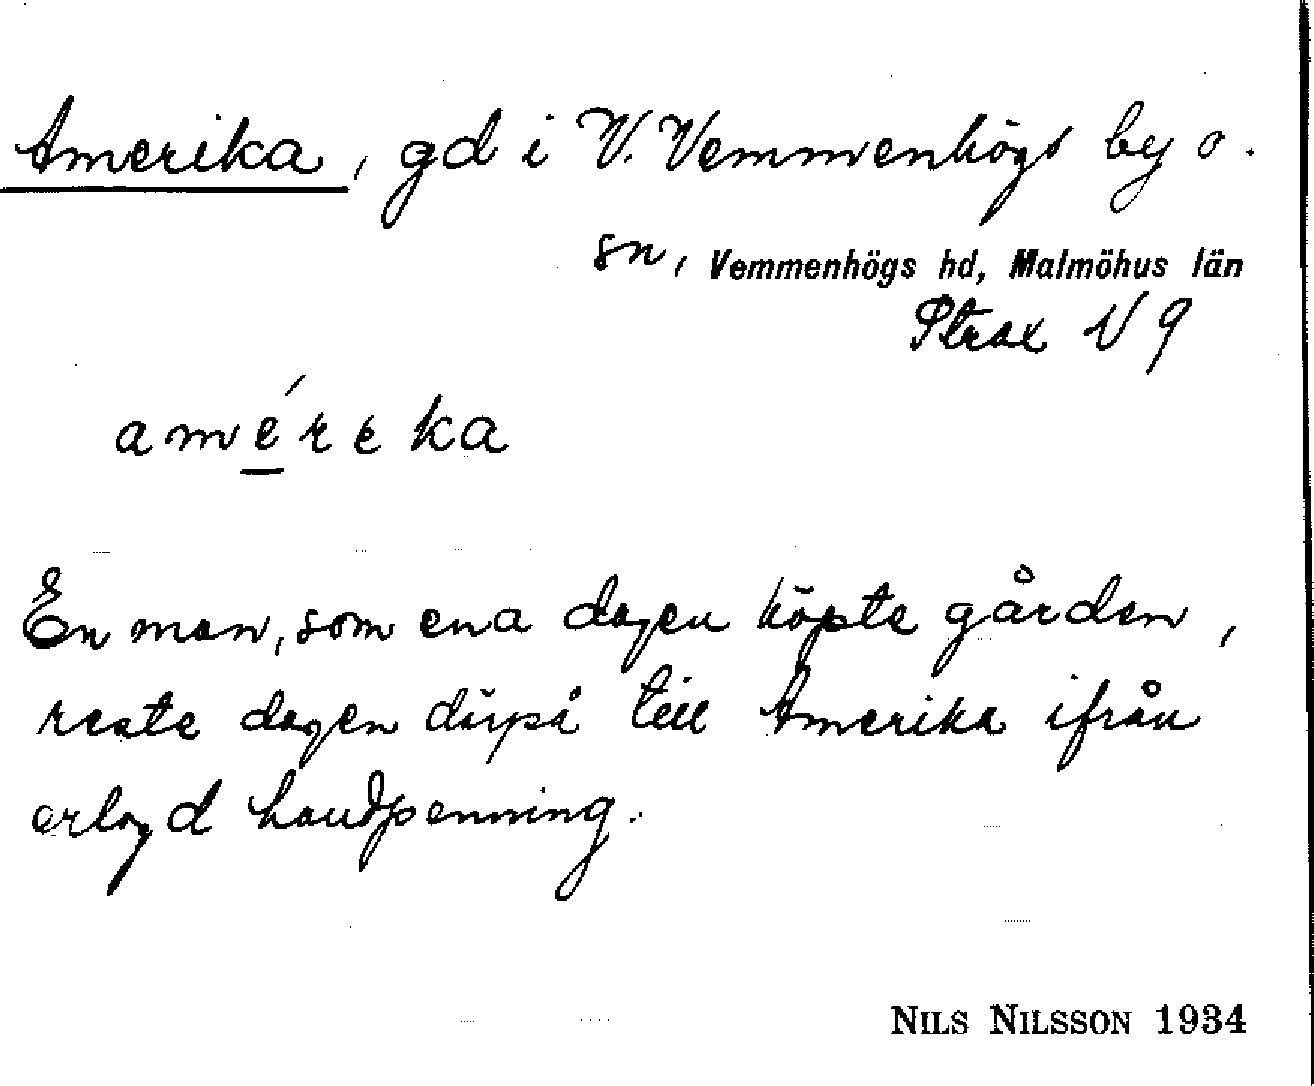 Amerika, gd i V. Vemmenhögs by o.
sn, Vemmenhögs hd, Malmöhus län
Strax V 9
améreka
En man, som ena dagen köpte gården,
reste dagen därpå till Amerika ifrån
erlagd handpenning.
NILS NILSSON 1934